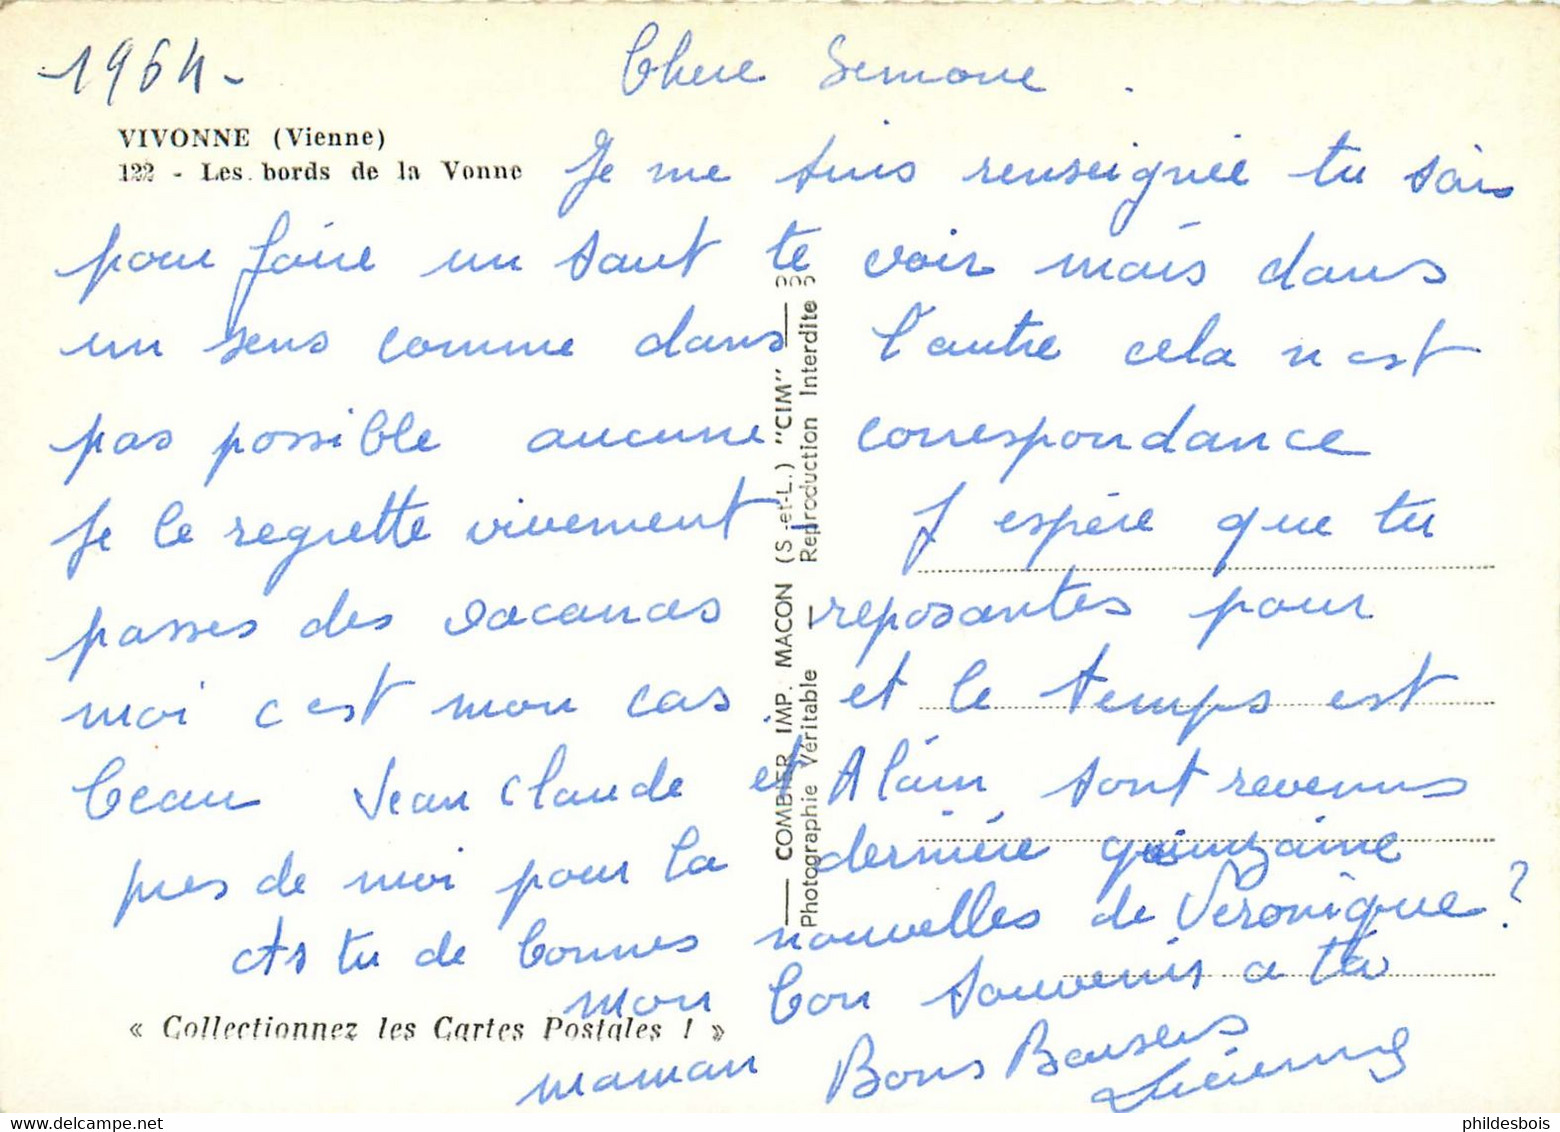 1964-
Chere Simone.
VIVONNE (Vienne)
122 - Les bords de la Vonne
Je me suis renseignée tu sais
pour faire un saut te voir mais dans
un sens comme dans l'autre cela n est
pas possible aucune correspondance
Je le regrette vivement J espère que tu
passes des vacances reposantes pour
moi c est mon cas et le temps est
beau Jean Claude et Alain sont revenus
pres de moi pour la dernière quinzaine
As tu de bonnes nouvelles de Veronique ?
mon bon souvenir a ta
maman Bons Baisers
Lucienne
« Collectionnez les Cartes Postales ! »
COMBIER IMP. MACON (S.-et-L.) "CIM"
Photographie Véritable — Reproduction Interdite
phildesbois